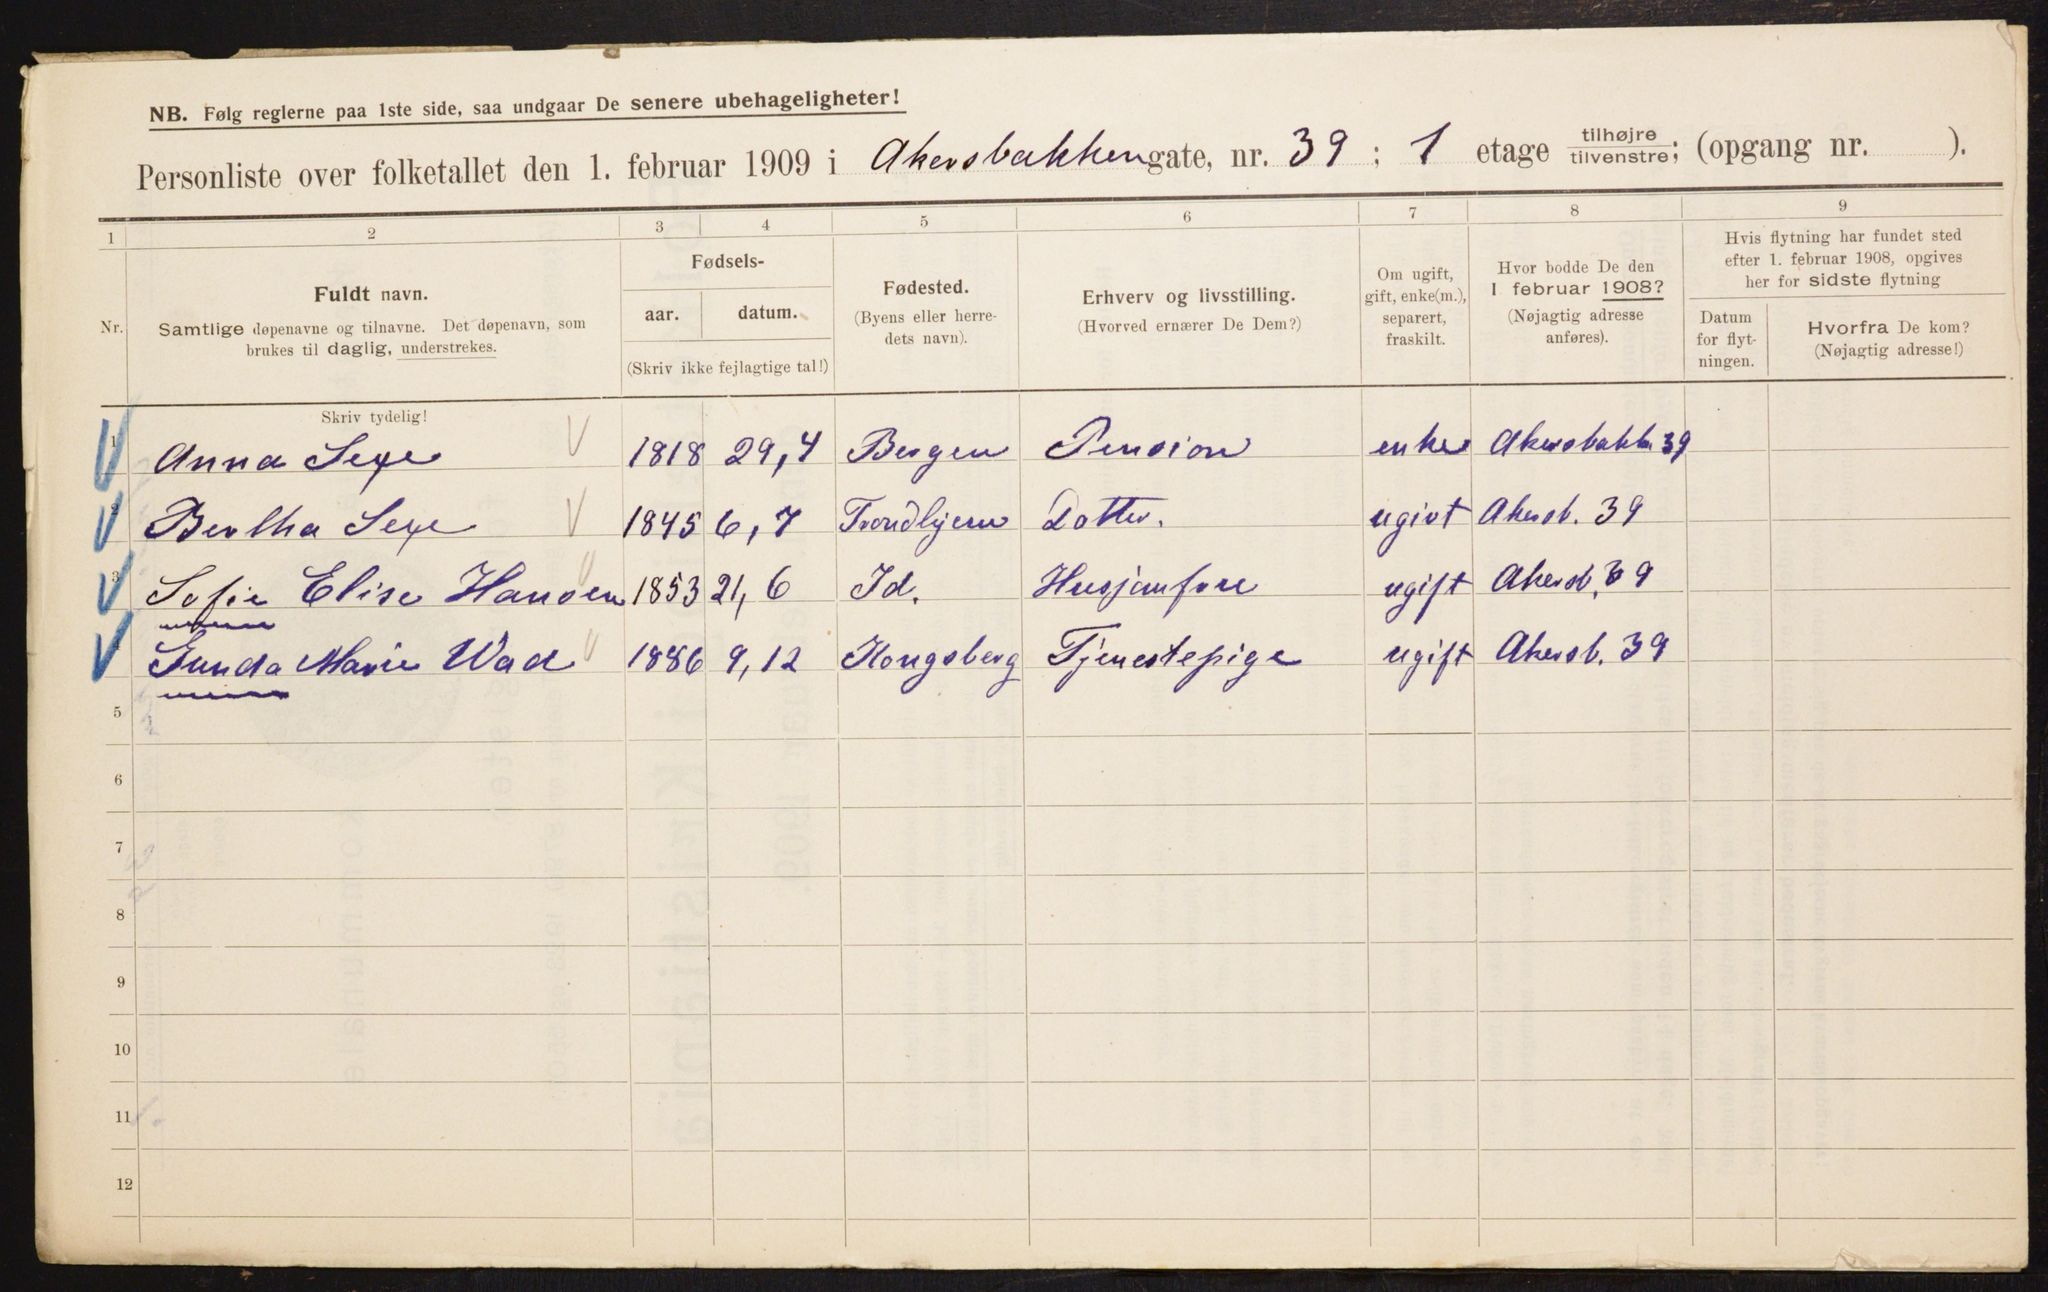 NB. Følg reglerne paa 1ste side, saa undgaar De senere ubehageligheter!
Personliste over folketallet den 1. februar 1909 i Akersbakken gate, nr. 39 ; 1 etage tilhøjre/tilvenstre; (opgang nr. ).
1 2 3 4 5 6 7 8 9
Nr.
Fuldt navn.
Samtlige døpenavne og tilnavne. Det døpenavn, som
brukes til daglig, understrekes.
Fødsels-
aar. datum.
(Skriv ikke fejlagtige tal!)
Fødested.
(Byens eller herre-
dets navn).
Erhverv og livsstilling.
(Hvorved ernærer De Dem?)
Om ugift,
gift, enke(m.),
separert,
fraskilt.
Hvor bodde De den
1 februar 1908?
(Nøjagtig adresse
anføres).
Hvis flytning har fundet sted
efter 1. februar 1908, opgives
her for sidste flytning
Datum
for flyt-
ningen.
Hvorfra De kom?
(Nøjagtig adresse!)
Skriv tydelig!
1 Anna Sexe 1818 29,4 Bergen Pension enke Akersbakk. 39
2 Bertha Sexe 1845 6,7 Trondhjem Dotter. ugivt Akersb. 39
3 Sofie Elise Hansen 1853 21,6 Id. Husjomfru ugift Akersb. 39
4 Gunda Marie Wad 1886 9,12 Kongsberg Tjenestepige ugift Akersb. 39
5
6
7
8
9
10
11
12